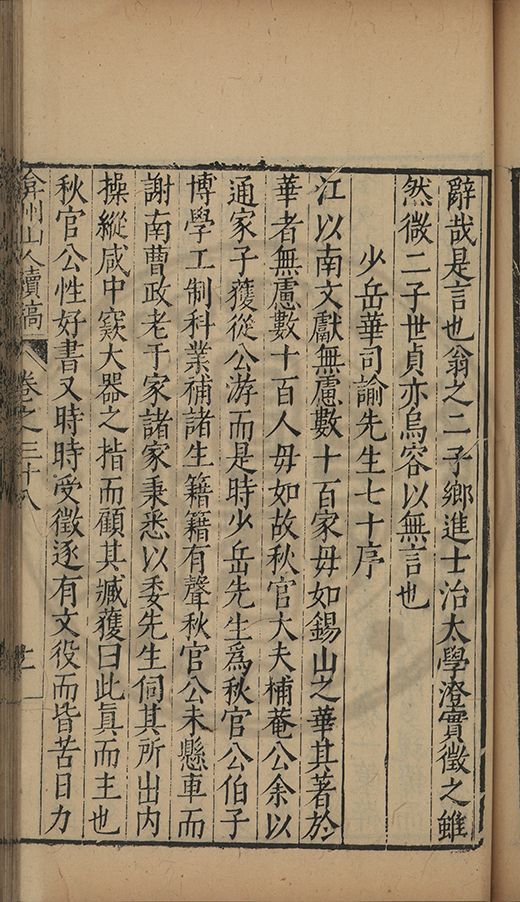 辭哉是言也翁之二子鄉進士治太學澄實徵之雖
然微二子世貞亦烏容以無言也
少岳華司諭先生七十序
江以南文獻無慮數十百家毋如錫山之華其著於
華者無慮數十百人毋如故秋官大夫補菴公余以
通家子獲從公游而是時少岳先生爲秋官公伯子
博學工制科業補諸生籍籍有聲秋官公未懸車而
謝南曹政老于家諸家秉悉以委先生伺其所出内
操縱咸中窾大器之指而顧其臧獲曰此眞而主也
秋官公性好書又時時受徵逐有文役而皆苦日力
弇州山人續稿
卷之三十八